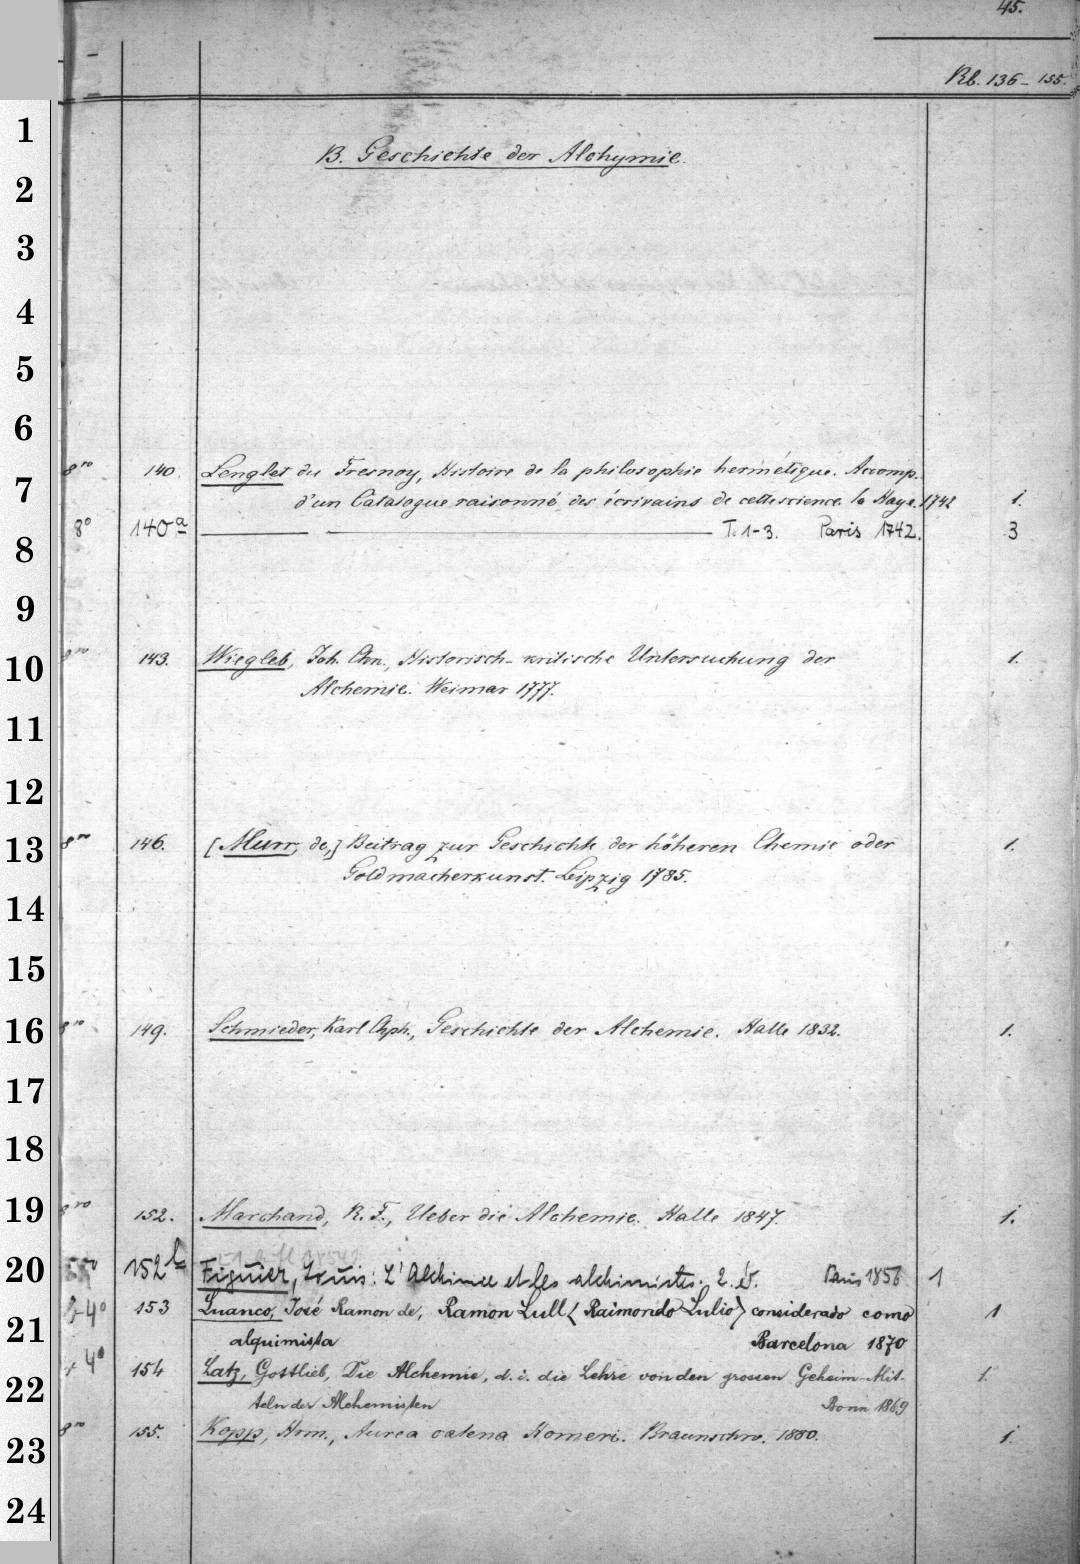 45.
Rb. 136-155.
B. Geschichte der Alchymie.
1
2
3
4
5
6
7
8
9
10
11
12
13
14
15
16
17
18
19
20
21
22
23
24
8vo 140. Lenglet du Fresnoy, Histoire de la philosophie hermétique. Accomp.
d'un Catalogue raisonné des écrivains de cette science. la Haye. 1742 1.
8° 140a T. 1-3. Paris 1742. 3
8vo 143. Wiegleb, Joh. Chn., Historisch-kritische Untersuchung der 1.
Alchemie. Weimar 1777.
8vo 146. [Murr, de,] Beitrag zur Geschichte der höheren Chemie oder 1.
Goldmacherkunst. Leipzig 1785.
8vo 149. Schmieder, Karl Chph., Geschichte der Alchemie. Halle 1832. 1.
8vo 152. Marchand, R. F., Ueber die Alchemie. Halle 1847. 1.
152b Figuier, Louis: L'Alchimie et les alchimistes. 2. éd. Paris 1856 1
4° 153 Luanco, José Ramon de, Ramon Lull (Raimondo Lulio) considerado como 1
alquimista Barcelona 1870
4° 154 Latz, Gottlieb, Die Alchemie, d. i. die Lehre von den grossen Geheim-Mit- 1.
teln der Alchemisten Bonn 1869
8vo 155. Kopp, Hrm., Aurea catena Homeri. Braunschw. 1880. 1.